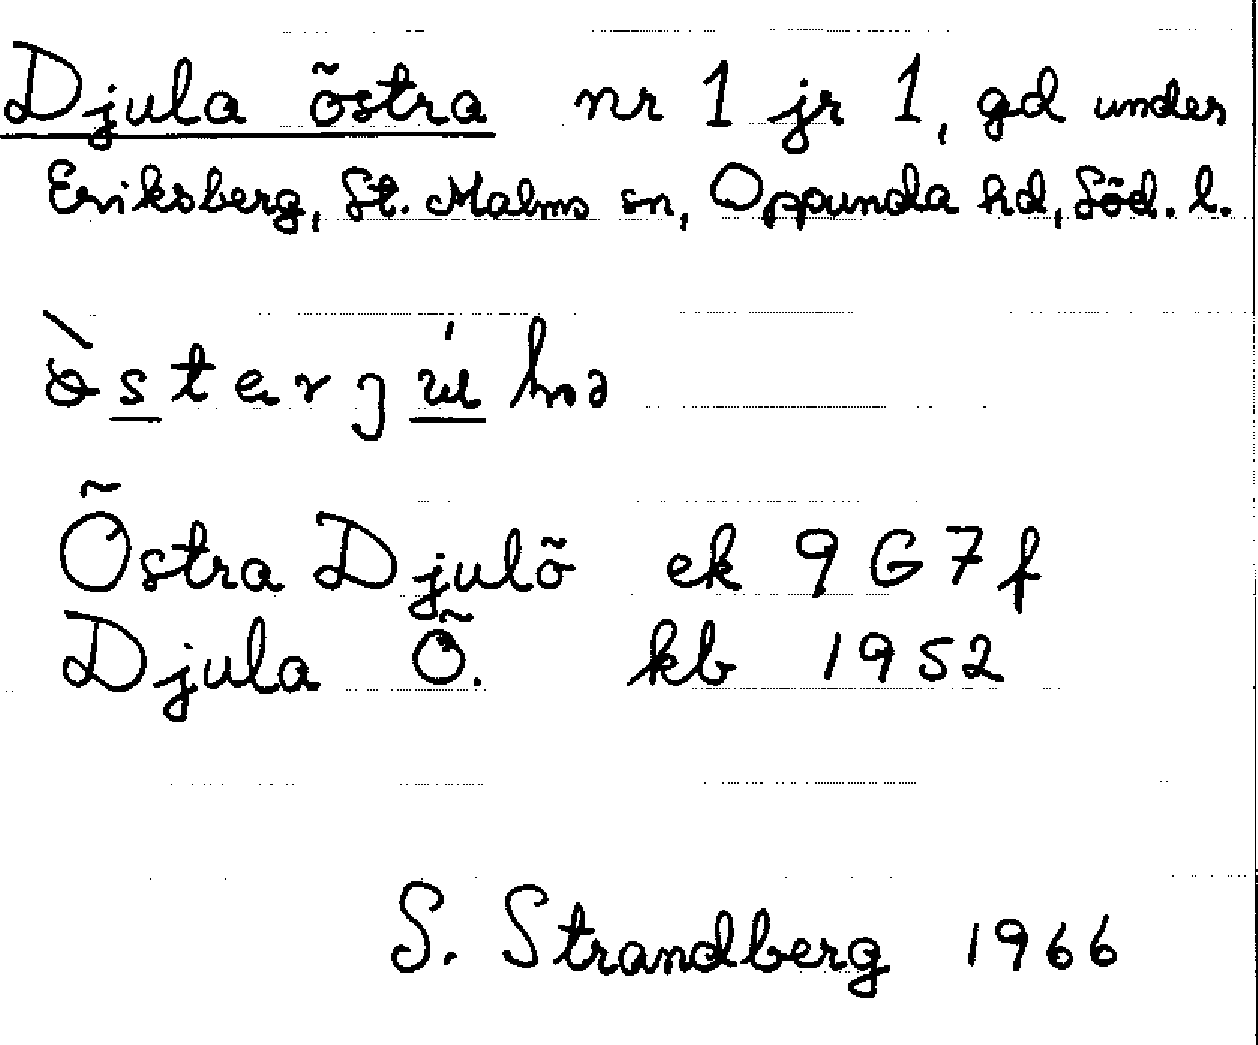 Djula östra nr 1 jr 1, gd under
Eriksberg, St. Malms sn, Oppunda hd, Söd. l.
Östra Djulö ek 9G7f
Djula Ö. kb 1952
S. Strandberg 1966